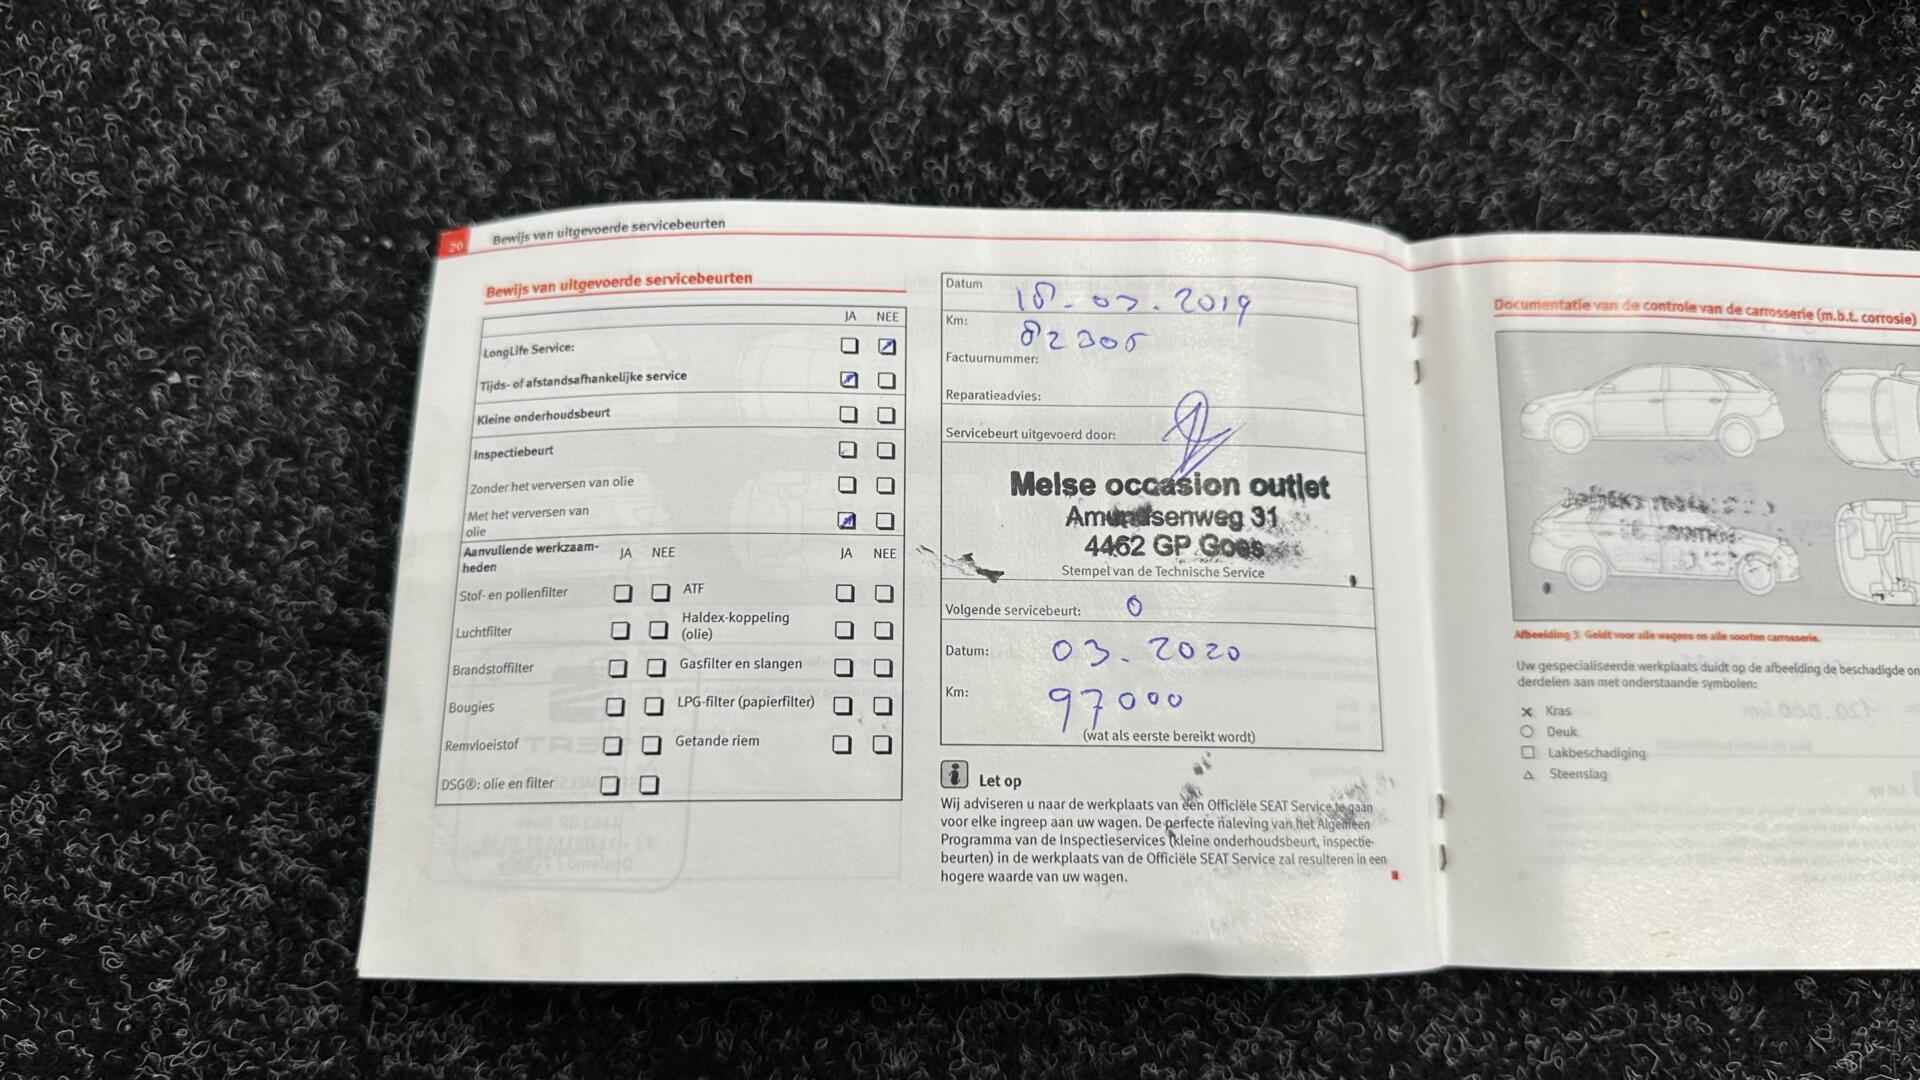 20 Bewijs van uitgevoerde servicebeurten
Bewijs van uitgevoerde servicebeurten
JA NEE
LongLife Service:
Tijds- of afstandsafhankelijke service
Kleine onderhoudsbeurt
Inspectiebeurt
Zonder het verversen van olie
Met het verversen van
olie
Aanvullende werkzaam-
heden
JA NEE JA NEE
Stof- en pollenfilter ATF
Luchtfilter Haldex-koppeling
(olie)
Brandstoffilter Gasfilter en slangen
Bougies LPG-filter (papierfilter)
Remvloeistof Getande riem
DSG®: olie en filter
Datum 18-03.2019
Km: 82305
Factuurnummer:
Reparatieadvies:
Servicebeurt uitgevoerd door:
Melse occasion outlet
Amundsenweg 31
4462 GP Goes
Stempel van de Technische Service
Volgende servicebeurt: 0
Datum: 03.2020
Km: 97000
(wat als eerste bereikt wordt)
i Let op
Wij adviseren u naar de werkplaats van een Officiële SEAT Service te gaan
voor elke ingreep aan uw wagen. De perfecte naleving van het Algemeen
Programma van de Inspectieservices (kleine onderhoudsbeurt, inspectie-
beurten) in de werkplaats van de Officiële SEAT Service zal resulteren in een
hogere waarde van uw wagen.
Documentatie van de controle van de carrosserie (m.b.t. corrosie)
Afbeelding 3 Geldt voor alle wagens en alle soorten carrosserie.
Uw gespecialiseerde werkplaats duidt op de afbeelding de beschadigde on
derdelen aan met onderstaande symbolen:
Kras
Deuk
Lakbeschadiging
Steenslag